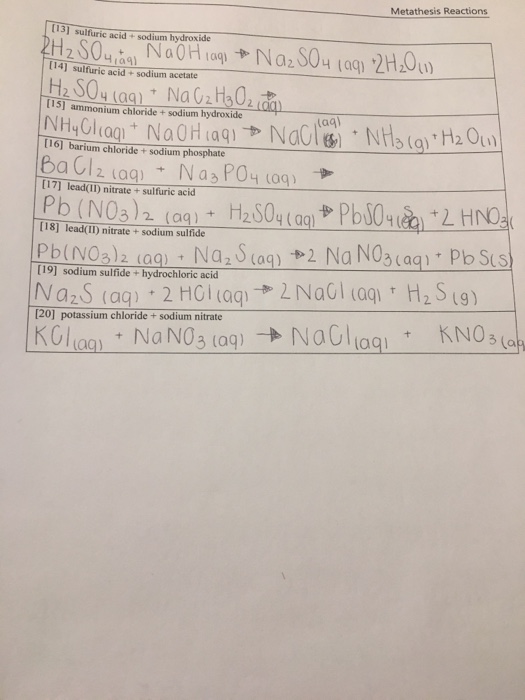 Metathesis Reactions
[13] sulfuric acid + sodium hydroxide
2H2SO4(aq) + NaOH(aq) → Na2SO4(aq) + 2H2O(l)
[14] sulfuric acid + sodium acetate
H2SO4(aq) + NaC2H3O2(aq) →
[15] ammonium chloride + sodium hydroxide
NH4Cl(aq) + NaOH(aq) → NaCl(aq) + NH3(g) + H2O(l)
[16] barium chloride + sodium phosphate
BaCl2(aq) + Na3PO4(aq) →
[17] lead(II) nitrate + sulfuric acid
Pb(NO3)2(aq) + H2SO4(aq) → PbSO4(s) + 2HNO3(
[18] lead(II) nitrate + sodium sulfide
Pb(NO3)2(aq) + Na2S(aq) → 2NaNO3(aq) + PbS(s)
[19] sodium sulfide + hydrochloric acid
Na2S(aq) + 2HCl(aq) → 2NaCl(aq) + H2S(g)
[20] potassium chloride + sodium nitrate
KCl(aq) + NaNO3(aq) → NaCl(aq) + KNO3(aq